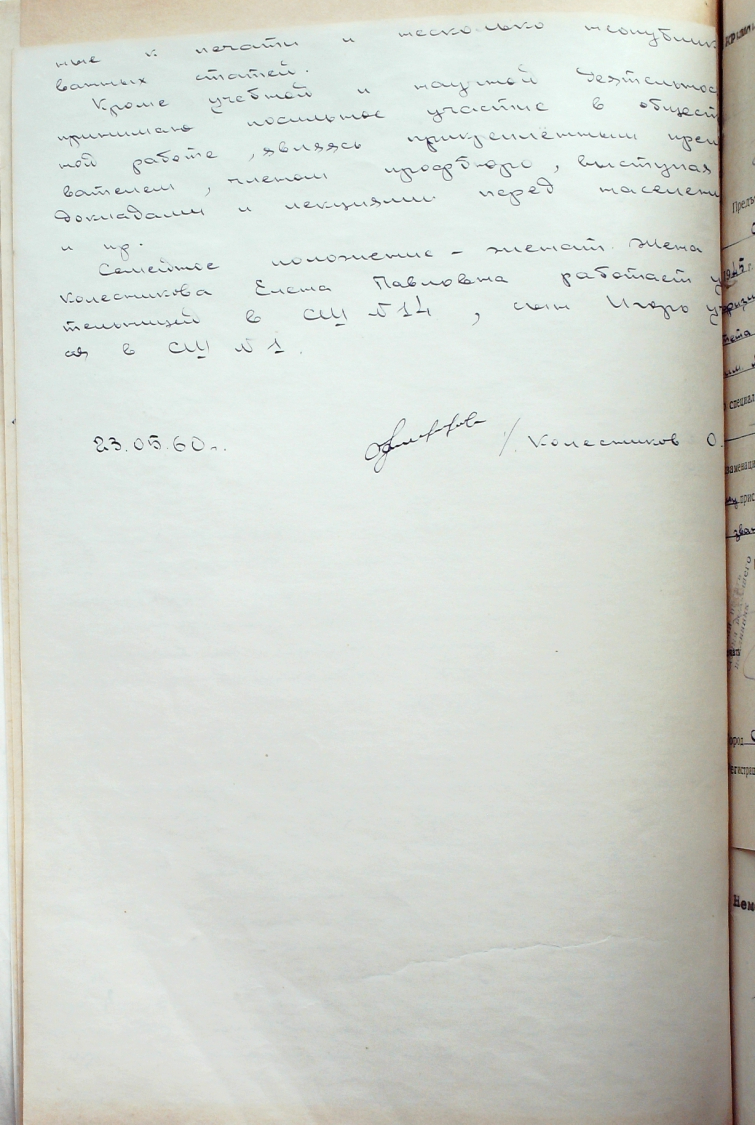 ные к печати и несколько неопублик
ванных статей.
Кроме учебной и научной деятельнос
принимаю посильное участие в общест
ной работе, являясь прикреплённым преп
вателем, членом профбюро, выступая
докладами и лекциями перед населени
и пр.
Семейное положение - женат. Жена
Колесникова Елена Павловна работает у
тельницей в СШ №14, сын Игорь уч
ся в СШ №1.
23.05.60г.
/ Колесников О.